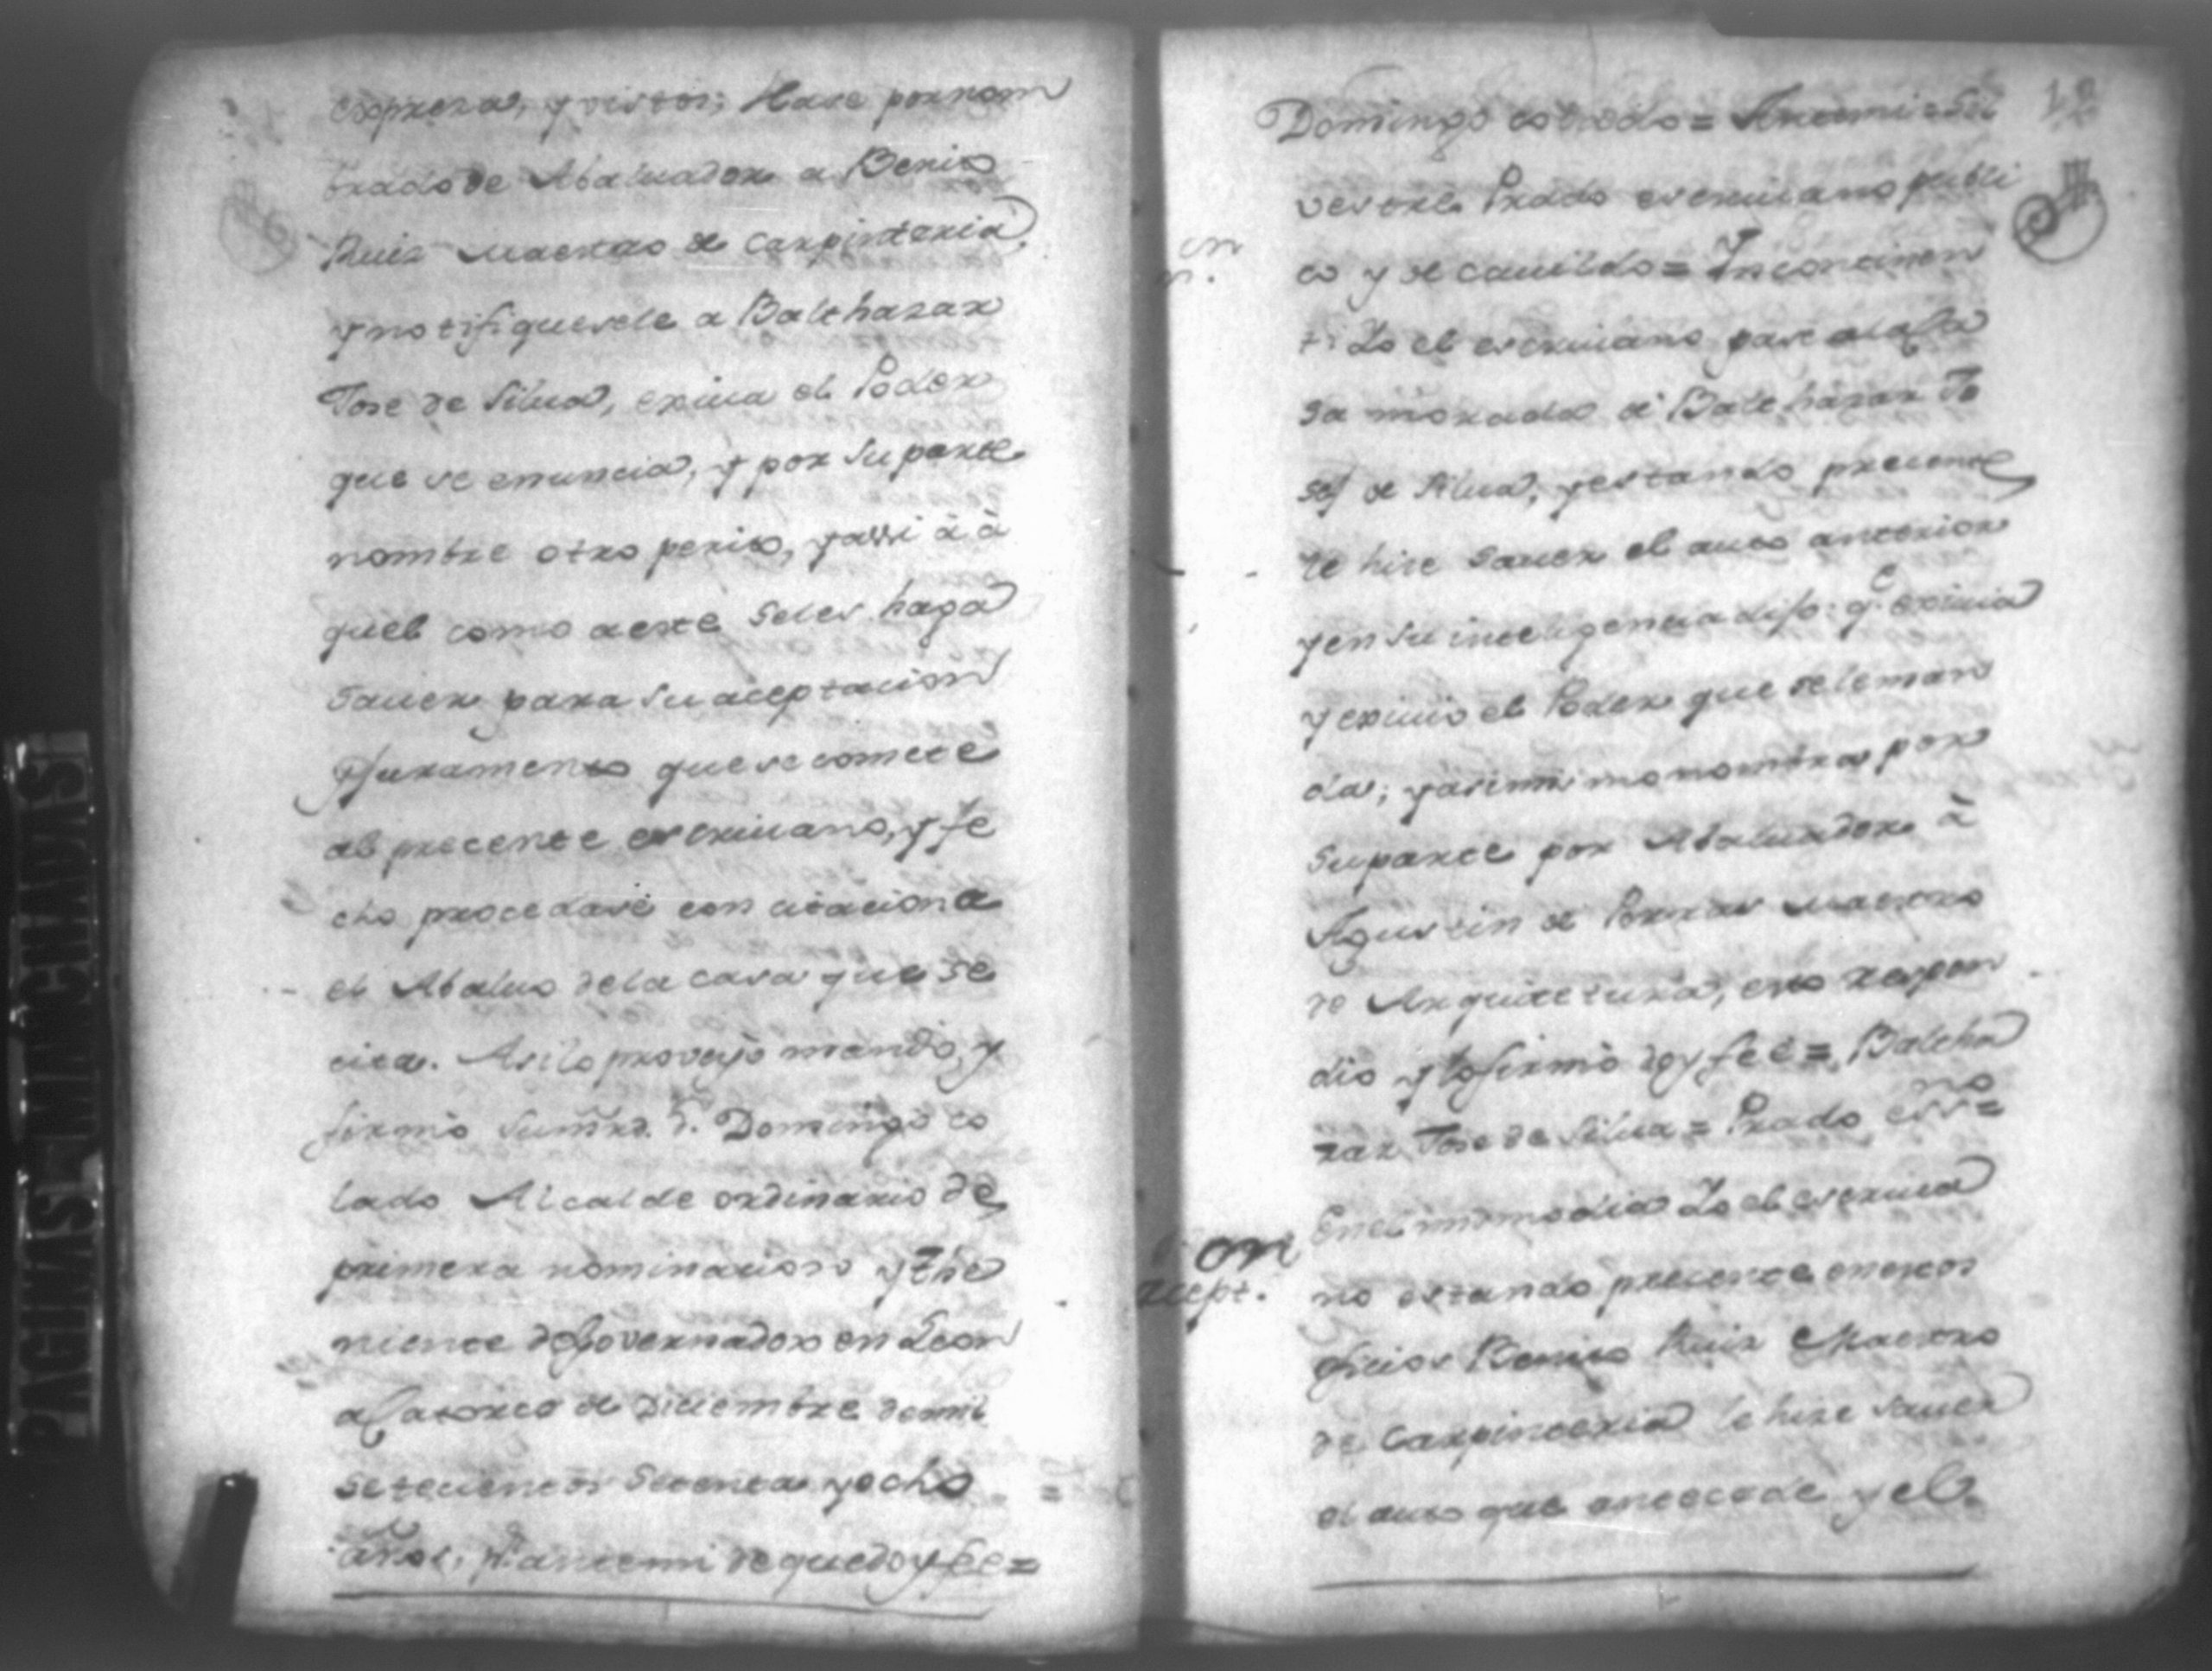 exprera, y vistos; Hase por nom
brado de Abaluador a Benito
Ruiz Maestro de Carpinteria,
y notifiquesele a Balthazar
Jose de Silva, exiua el Poder
que se enuncia, y por su parte
nombre otro perito, y assi â â
quel como a este seles haga
sauer para su aceptacion
y Juramento que se comete
al precente escriuano, y fe
cho procedase con citacion a
el Abaluo de la casa que se
cita. Asilo proveyò mandò, y
firmò Sumrd. D. Domingo co
lado Alcalde ordinario de
primera nominacion y The
niente de Governador en Leon
a Catorce de Diciembre de mil
setecientos setenta y ocho
años, ante mi de que doy fee=
12
Domingo colado = Ante mi = Sil
vestre Prado escriuano publi
co y de cauildo = Yncontinen
ti Yo el escriuano pase a la Ca
sa morada de Balthazar Jo
sef de Silva, y estando precente
le hice sauer el auto anterior
y en su inteligencia dijo: qe. exiuia
y exiuio el Poder que se le man
da; y asimismo nombra por
su parte por Abaluador â
Agustin de Porras Maestro
de Arquitetura, esto respon
dio y lo firmò doy fee =, Baltha
zar Jose de Silua = Prado essno=
En el mismo dia Yo el escriua
on
acept.
no estando precente en estos
oficios Benito Ruiz Maestro
de Carpinteria le hice sauer
el auto que antecede y el
PAGINAS MANCHADAS